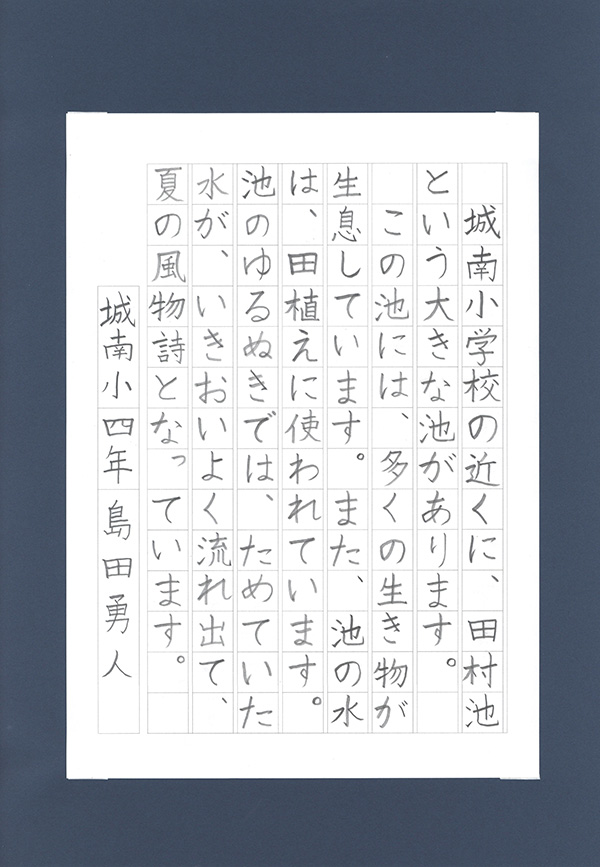 城南小学校の近くに、田村池
という大きな池があります。
この池には、多くの生き物が
生息しています。また、池の水
は、田植えに使われています。
池のゆるぬきでは、ためていた
水が、いきおいよく流れ出て、
夏の風物詩となっています。
城南小四年 島田勇人